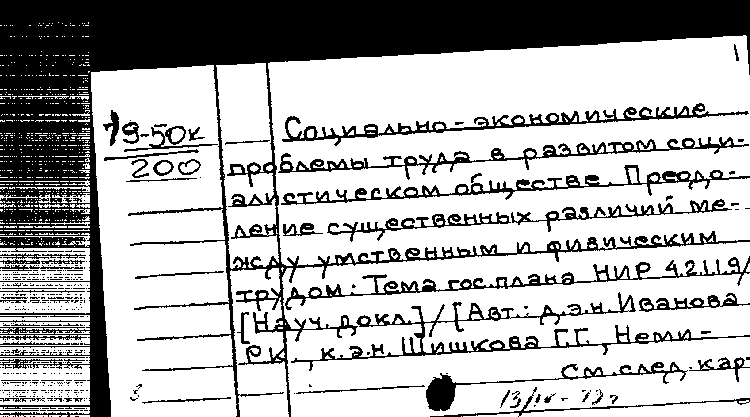 1
79-50к
200
Социально-экономические
проблемы труда в развитом соци-
алистическом обществе. Преодо-
ление существенных различий ме-
жду умственным и физическим
трудом: Тема гос.плана НИР 4.2.1.1.9/
[Науч.докл.]/[Авт.: д.э.н. Иванова
Р.К., к.э.н. Шишкова Г.Г., Неми-
См.след.кар-